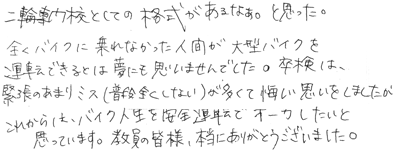 二輪専門校としての格式があるなぁ。と思った。
全くバイクに乗れなかった人間が大型バイクを
運転できるとは夢にも思いませんでした。卒検は、
緊張のあまりミス(普段全くしない)が多くて悔しい思いをしましたが
これからは、バイク人生を安全運転で オーカしたいと
思っています。教員の皆様、本当にありがとうございました。